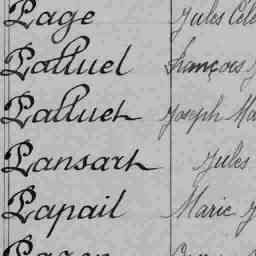 Page Jules
Palluel François
Palluet Joseph
Pansart Jules
Papail Marie